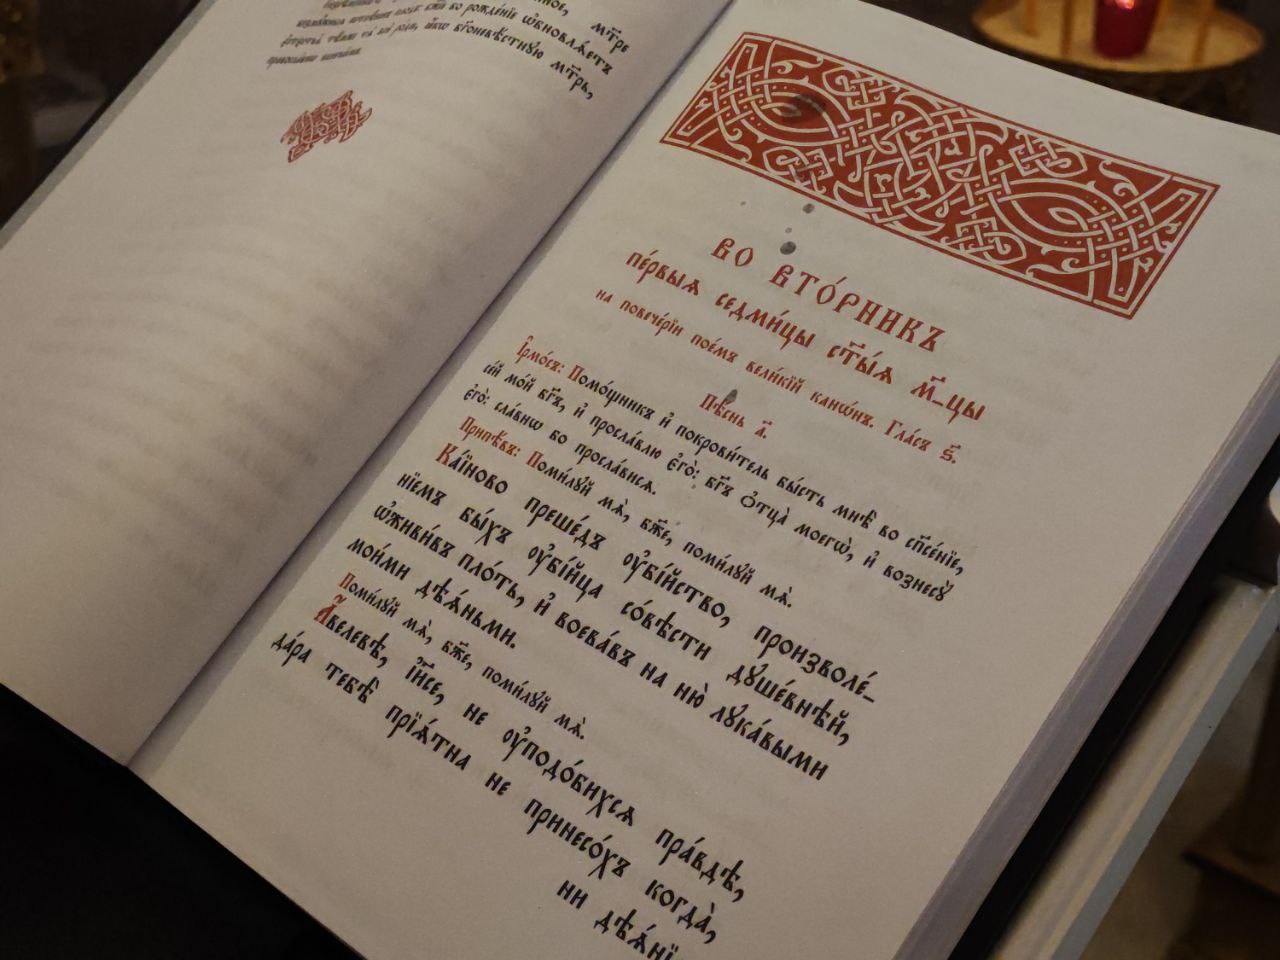 ѻ҆бновлѧ́етъ
мт҃ре
бг҃оневѣ́стную мт҃рь,
ВО ВТО́РНИКЪ
пе́рвыѧ седми́цы ст҃ы́ѧ м҃_цы
на повече́рїи пое́мъ вели́кїй канѡ́нъ. Гла́съ ѕ҃.
Пѣ́снь а҃.
І҆рмо́съ: Помо́щникъ и҆ покрови́тель бы́сть мнѣ̀ во сп҃се́нїе,
се́й мо́й бг҃ъ, и҆ просла́влю є҆го̀: бг҃ъ ѻ҆тца̀ моегѡ̀, и҆ вознесꙋ̀
є҆го̀: сла́внѡ бо просла́висѧ.
Припѣ́въ: Поми́лꙋй мѧ̀, бж҃е, поми́лꙋй мѧ̀.
Ка́їново преше́дъ ᲂу҆бі́йство, произволе́_
нїемъ бы́хъ ᲂу҆бі́йца со́вѣсти дꙋше́внѣй,
ѡ҆живи́въ пло́ть, и҆ воева́въ на ню̀ лꙋка́выми
мои́ми дѣѧ́ньми.
Поми́лꙋй мѧ̀, бж҃е, поми́лꙋй мѧ̀.
А҆́велевѣ, і҆и҃се, не ᲂу҆подо́бихсѧ пра́вдѣ,
да́ра тебѣ̀ прїѧ́тна не принесо́хъ когда̀,
ни дѣѧ́нї